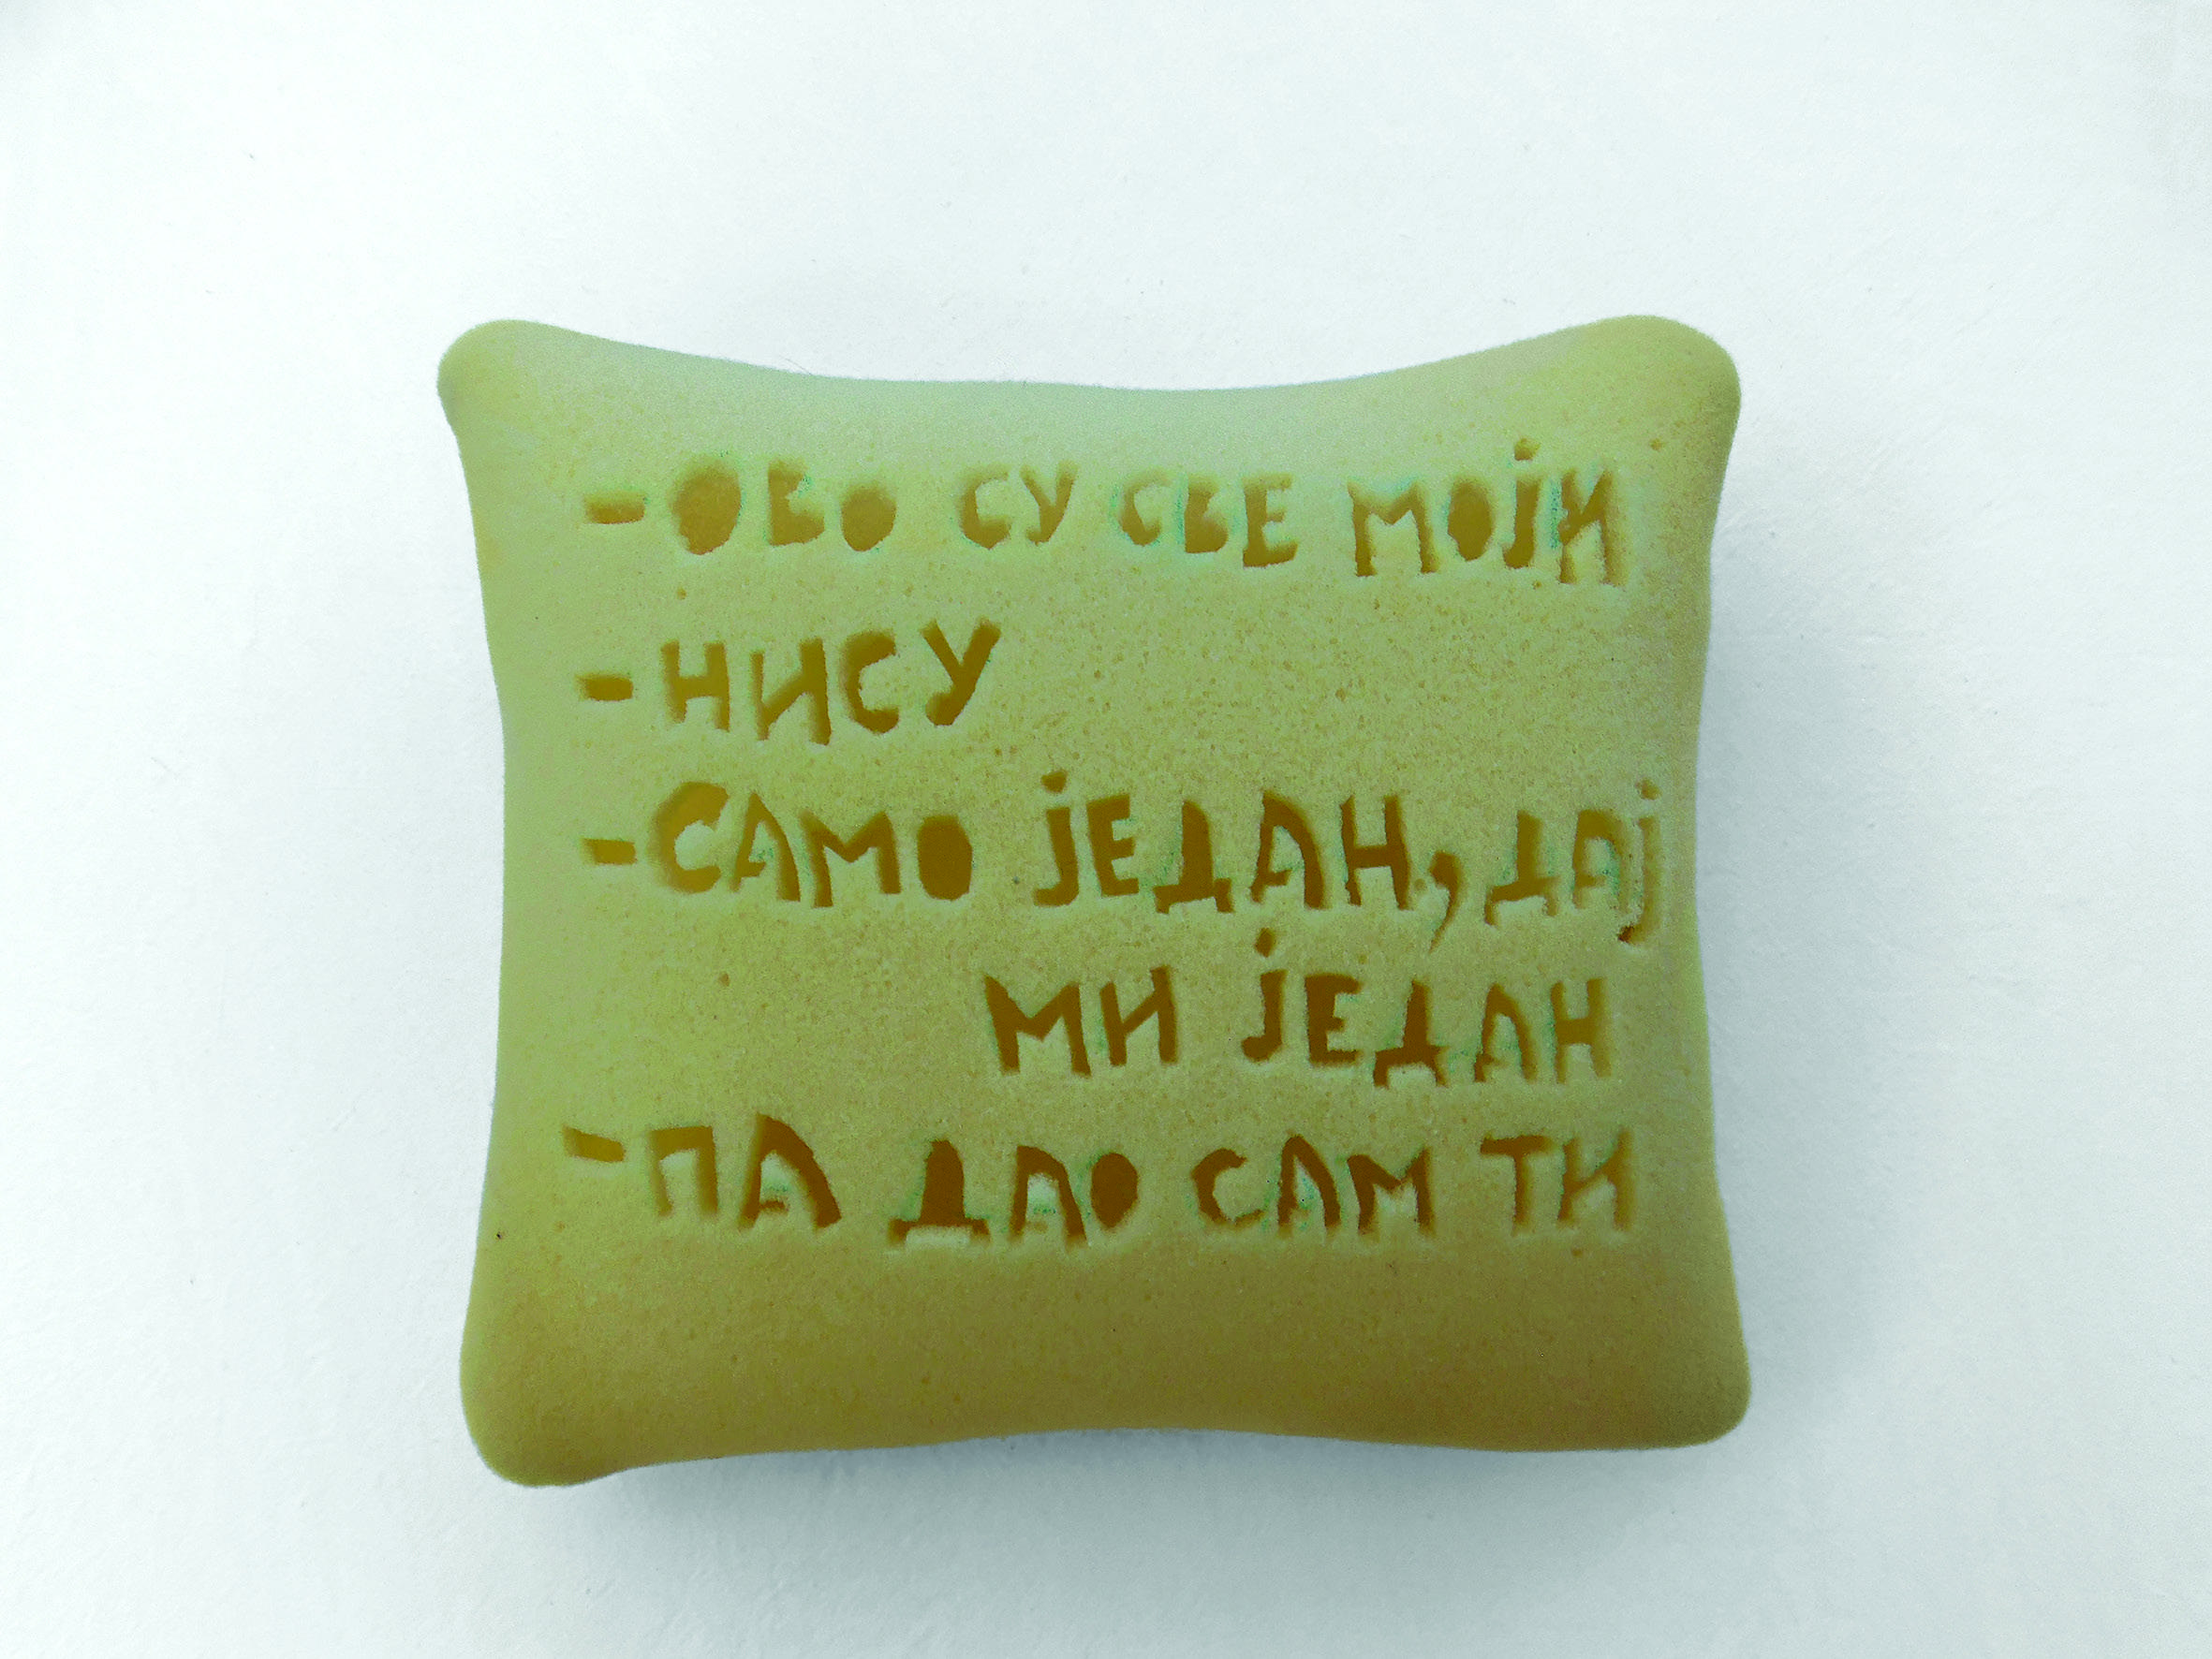 -ОВО СУ СВЕ МОЈИ
-НИСУ
-САМО ЈЕДАН, ДАЈ
МИ ЈЕДАН
-ПА ДАО САМ ТИ